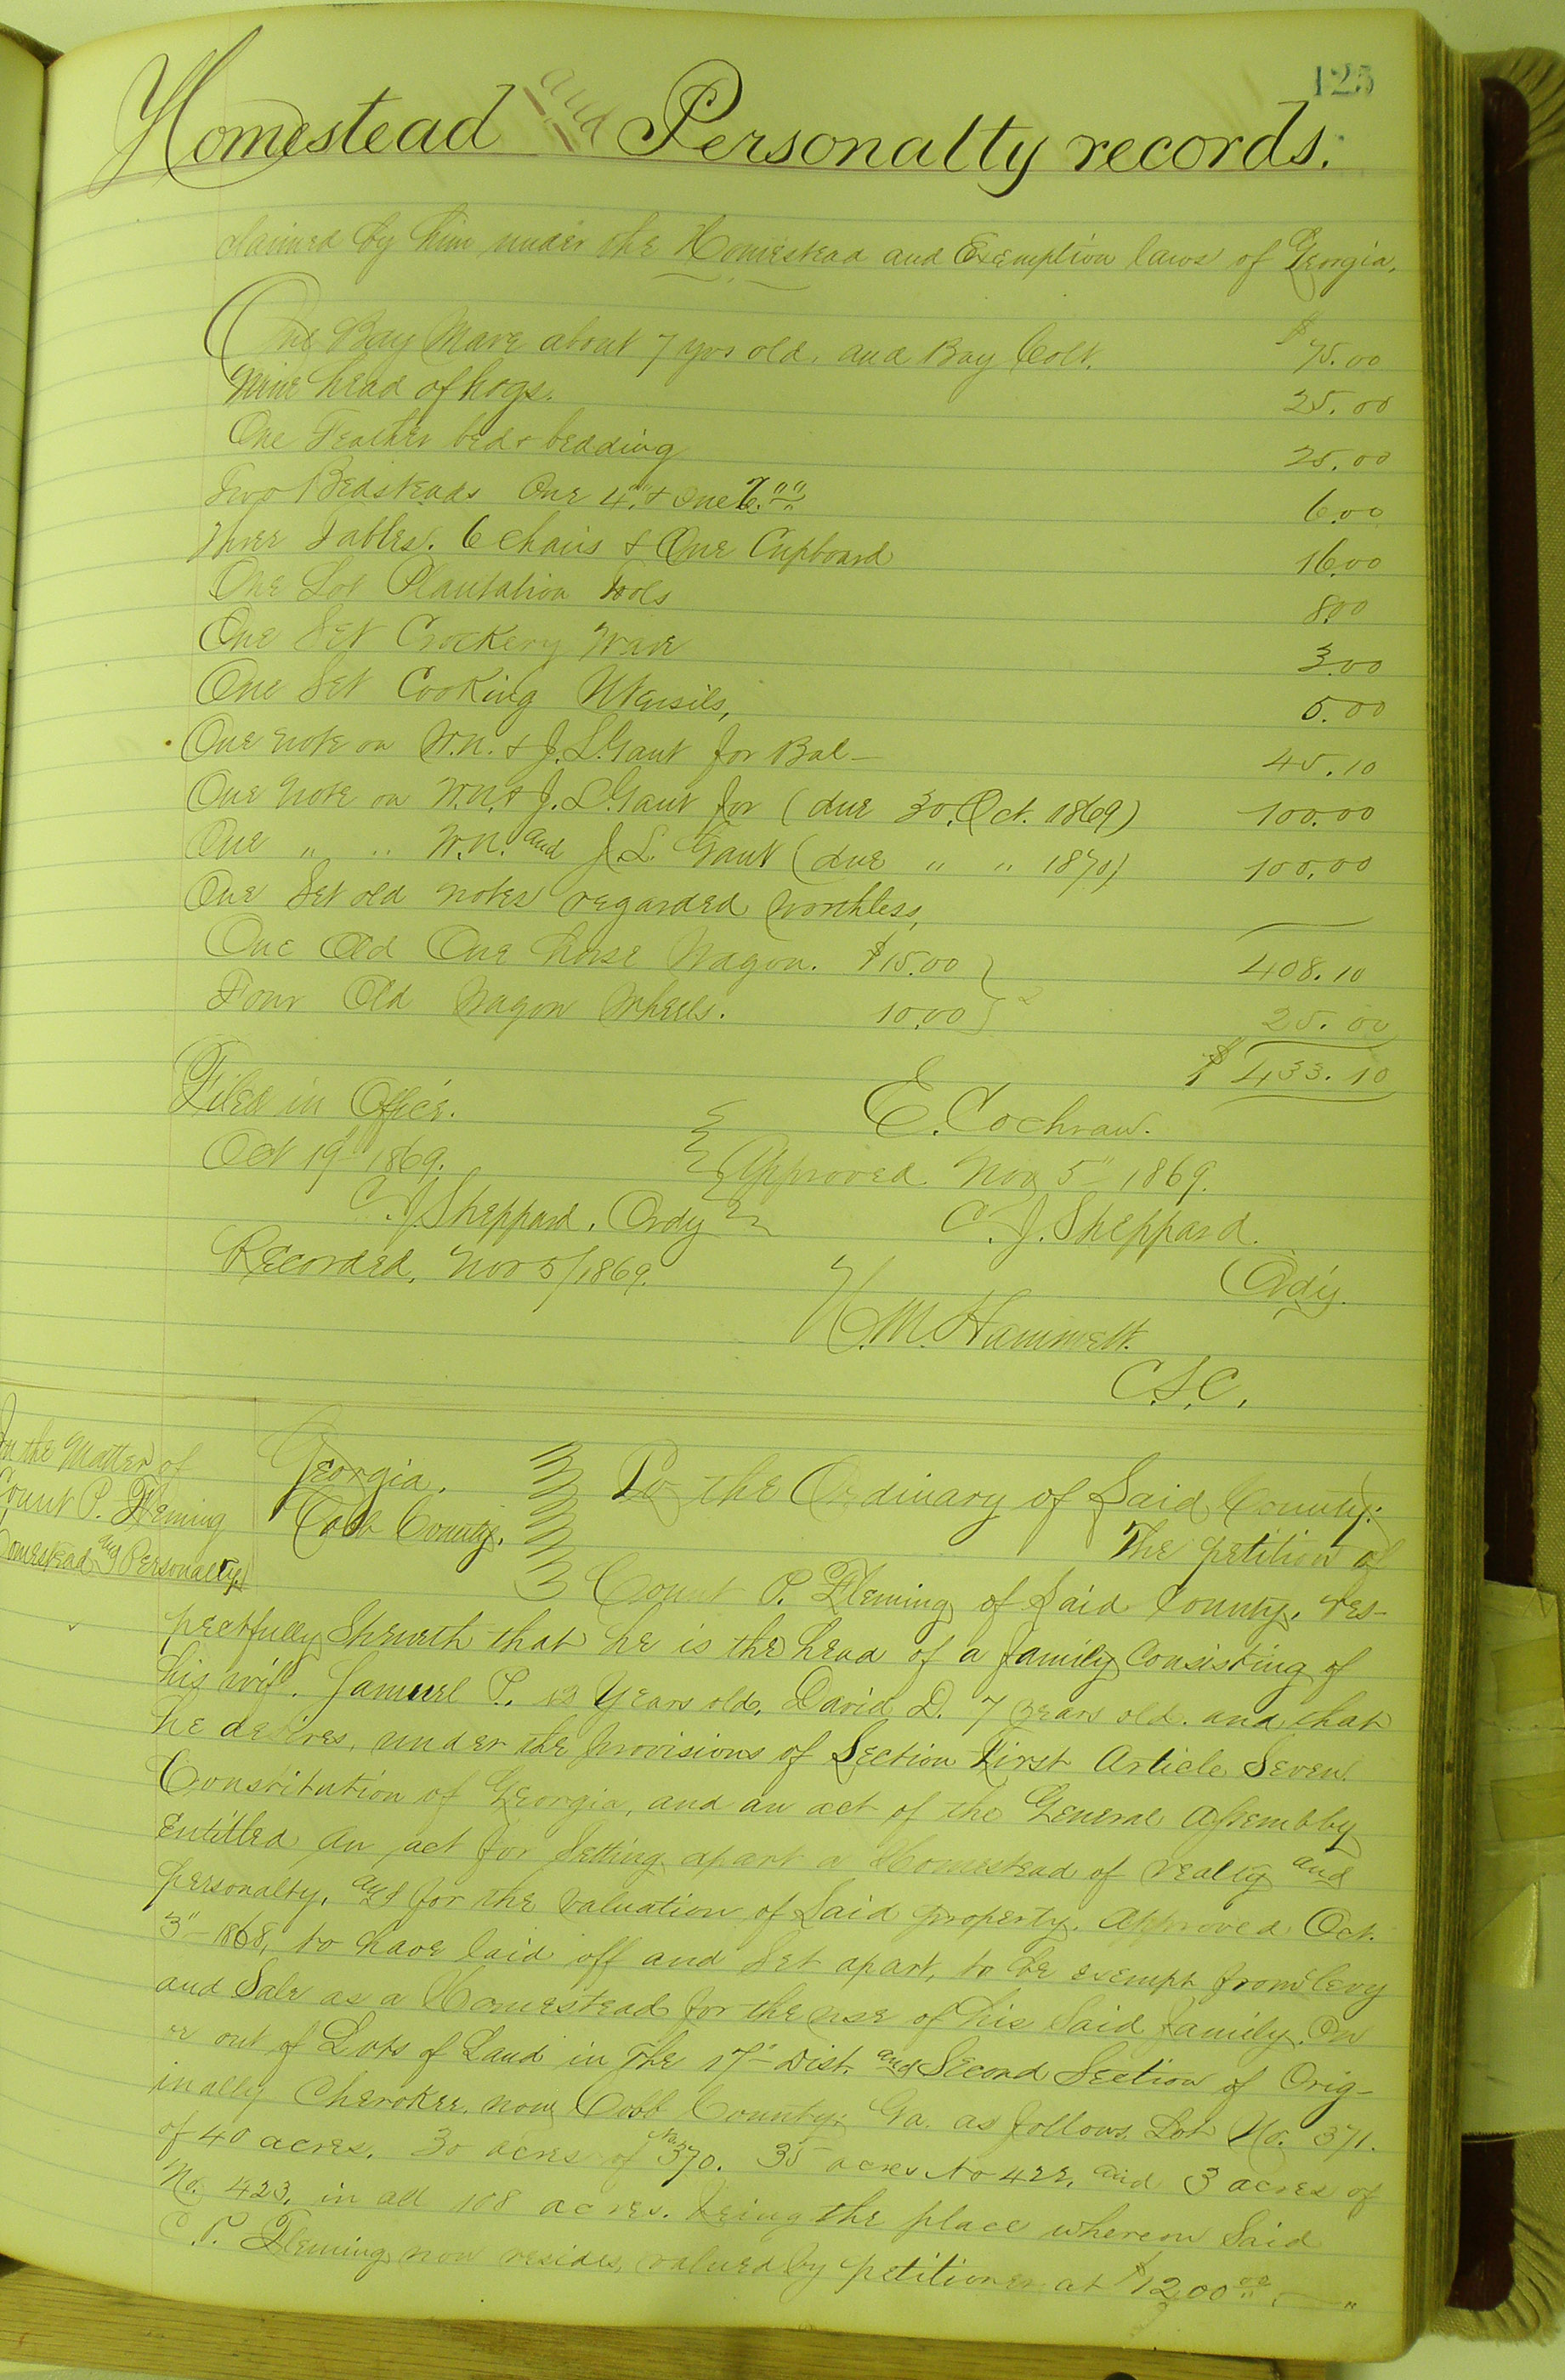 125
Homestead and Personalty records.
claimed by him under the Homestead and Exemption laws of Georgia.
One Bay Mare about 7 yrs old. and Bay Colt. $75.00
Nine head of hogs. 25.00
One Feather bed & bedding 25.00
Two Bedsteads One 4." & One 2.00 6.00
Three Tables. 6 chairs & One Cupboard 16.00
One Lot Plantation Tools 8.00
One Set Crockery Ware 3.00
One Set Cooking Utensils, 5.00
One note on W.N. & J.L. Gant for Bal— 45.10
One Note on W.N. & J.L. Gant for (due 30. Oct. 1869) 100.00
One " " W.N. and J.L. Gant (due " " 1870) 100.00
One Set old notes regarded worthless,
One Old One horse Wagon. $15.00 } 408.10
Four Old Wagon Wheels. 10.00 } 25.00
$433.10
Filed in Office. E. Cochran.
Oct 19th 1869. Approved Nov 5" 1869.
C.J. Sheppard, Ordy C. J. Sheppard.
Recorded, Nov 5/1869. Ordy.
H.M. Hammett.
C.S.C.
In the Matter of
Count P. Fleming
Homestead and Personalty.
Georgia. To the Ordinary of Said County:
Cobb County. The petition of
Count P. Fleming of Said County, res-
pectfully Sheweth that he is the head of a family Consisting of
his wife. Samuel P. 12 Years old, David D. 7 years old. and that
he desires, under the provisions of Section First Article Seven.
Constitution of Georgia, and an act of the General Assembly
Entitled An act for Setting apart a Homestead of realty and
personalty, and for the valuation of Said property. Approved Oct.
3"- 1868, to have laid off and Set apart, to be exempt from levy
and Sale as a Homestead for the use of his Said family. On
or out of Lots of Land in The 17"- Dist. and Second Section of Orig-
inally Cherokee. now Cobb County, Ga. as follows. Lot No. 371.
of 40 acres. 30 acres of No 370. 35 acres No 422, and 3 acres of
No. 423, in all 108 acres. being the place whereon Said
C.P. Fleming now resides, valued by petitioner at $1200.00